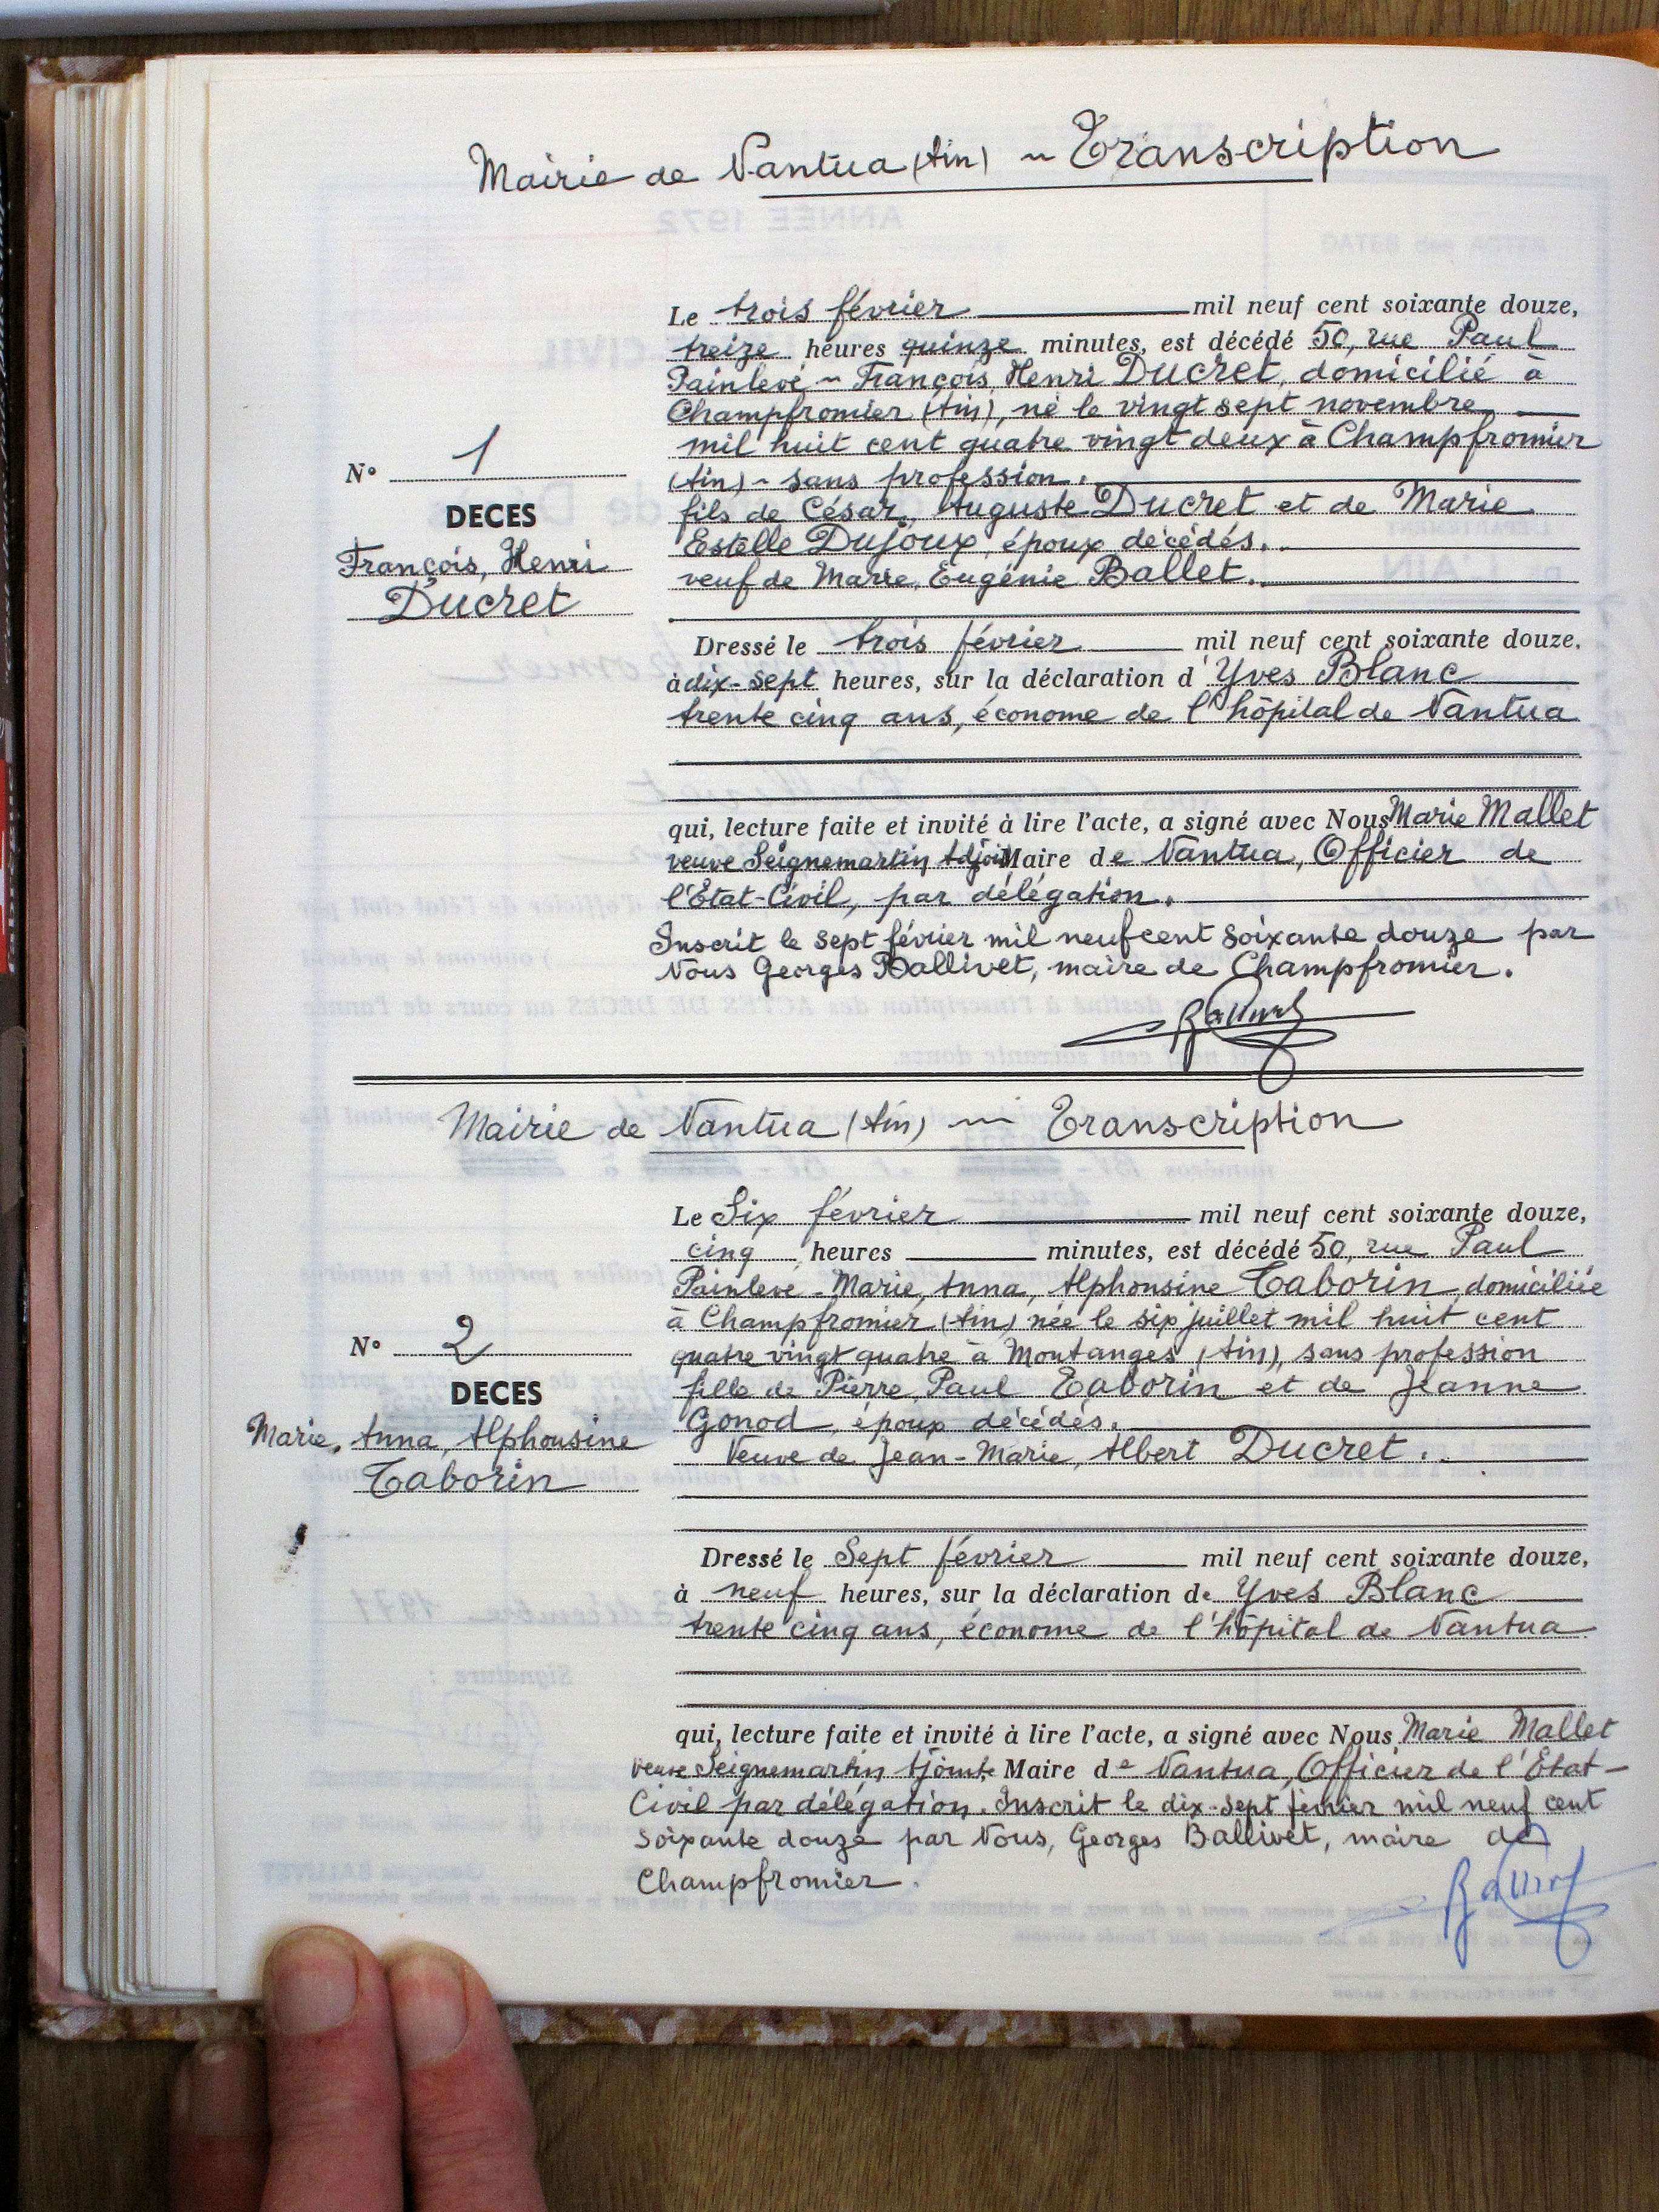 Mairie de Nantua (Ain) ~ Transcription
Le trois février mil neuf cent soixante douze,
treize heures quinze minutes, est décédé 50, rue Paul
Painlevé ~ François Henri Ducret, domicilié à
Champfromier (Ain), né le vingt sept novembre
mil huit cent quatre vingt deux à Champfromier
(Ain) ~ sans profession.
fils de César, Auguste Ducret et de Marie
Estelle Dujoux, époux décédés.
veuf de Marie, Eugénie Ballet.
N° 1
DECES
François, Henri
Ducret
Dressé le trois février mil neuf cent soixante douze.
à dix-sept heures, sur la déclaration d'Yves Blanc
trente cinq ans, économe de l'hôpital de Nantua
qui, lecture faite et invité à lire l'acte, a signé avec Nous Marie Mallet
veuve Seignemartin Adjoint Maire de Nantua, Officier de
l'Etat-Civil, par délégation.
Inscrit le sept février mil neuf cent soixante douze par
Nous Georges Ballivet, maire de Champfromier.
Ballivet
Mairie de Nantua (Ain) ~ Transcription
Le Six février mil neuf cent soixante douze,
cinq heures minutes, est décédé 50, rue Paul
Painleve - Marie, Anna, Alphonsine Taborin domiciliée
à Champfromier (Ain) née le six juillet mil huit cent
quatre vingt quatre à Montanges (Ain), sans profession
fille de Pierre, Paul Taborin et de Jeanne
Gonod, époux décédés.
Veuve de Jean-Marie, Albert Ducret.
N° 2
DECES
Marie, Anna, Alphonsine
Taborin
Dressé le Sept février mil neuf cent soixante douze,
à neuf heures, sur la déclaration de Yves Blanc
trente cinq ans, économe de l'hôpital de Nantua
qui, lecture faite et invité à lire l'acte, a signé avec Nous Marie Mallet
veuve Seignemartin Ajointe Maire de Nantua, Officier de l'Etat-
Civil par délégation. Inscrit le dix-sept février mil neuf cent
soixante douze par Nous, Georges Ballivet, maire de
Champfromier.
Ballivet